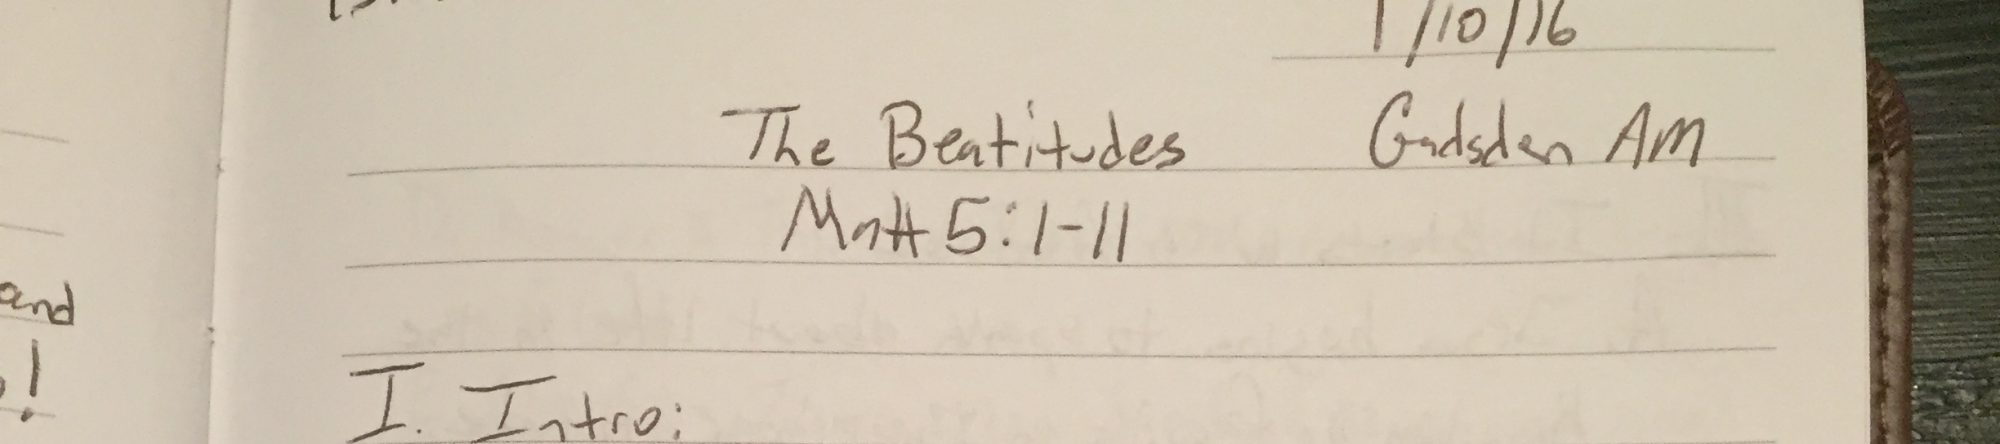 and
!
1/10/16
The Beatitudes Gadsden AM
Matt 5:1-11
I. Intro: